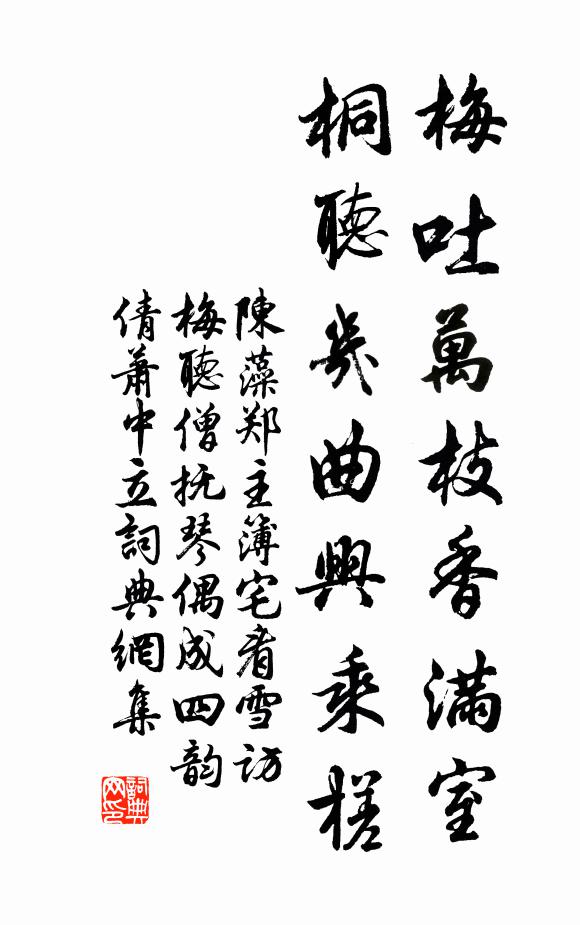 梅吐萬枝香滿室
桐聽幾曲興乘槎
陳藻郑主簿宅看雪访
梅聽僧抚琴偶成四韵
倩蕭中立詞典網集
詞典网印